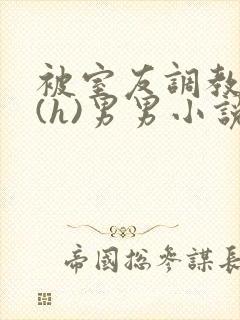 被室友調教
(h)男男小説
帝國總參謀長